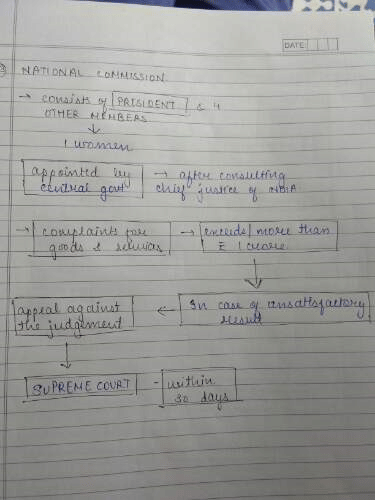 DATE
③ NATIONAL COMMISSION
→ consists of PRESIDENT & 4
OTHER MEMBERS
↓
1 women
appointed by → after consulting
central govt chief justice of INDIA
→ complaints for → exceeds/more than
goods & services ₹ 1 crore
↓
appeal against ← In case of unsatisfactory
the judgement result
↓
SUPREME COURT - within
30 days